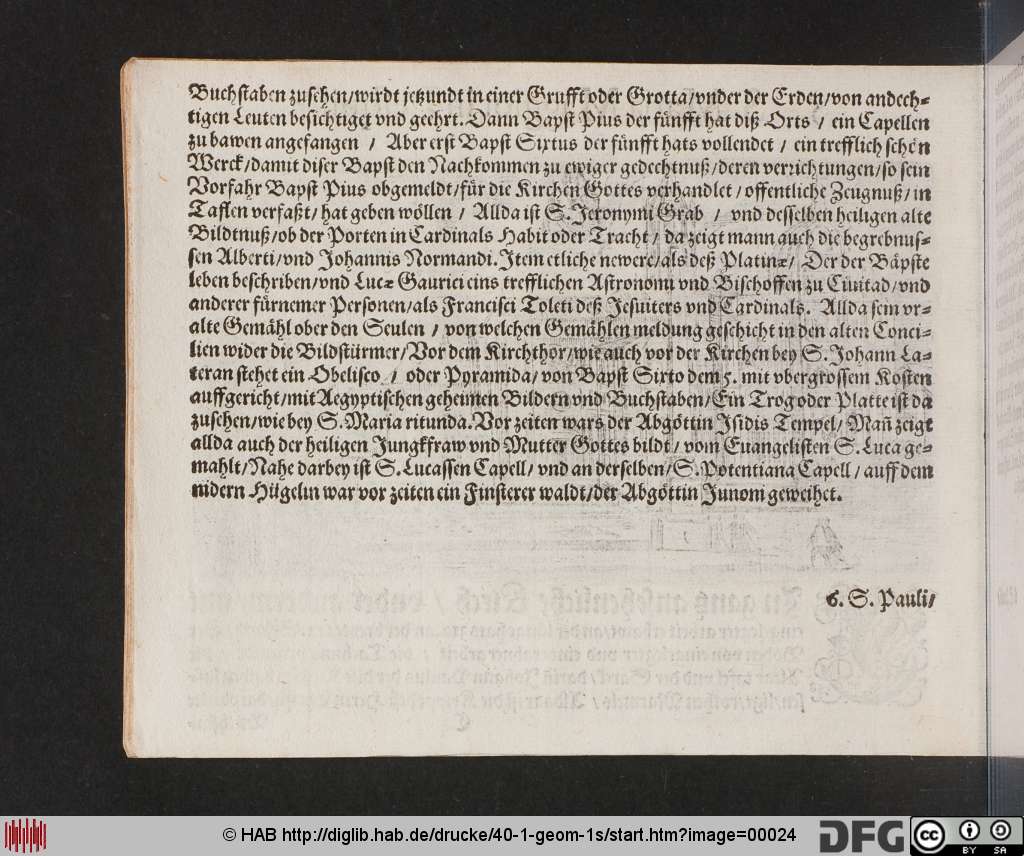 Buchstaben zusehen/wirdt jetzundt in einer Grufft oder Grotta/vnder der Erden/von andech⸗
tigen Leuten besichtiget vnd geehrt. Dann Bapst Pius der fünfft hat diß Orts / ein Capellen
zu bawen angefangen / Aber erst Bapst Sixtus der fünfft hats vollendet / ein trefflich schön
Werck/damit diser Bapst den Nachkommen zu ewiger gedechtnuß/deren verrichtungen/so sein
Vorfahr Bapst Pius obgemeldt/für die Kirchen Gottes verhandlet / offentliche Zeugnuß/in
Taflen verfaßt/hat geben wöllen / Allda ist S. Jeronymi Grab / vnd desselben heiligen alte
Bildtnuß/ob der Porten in Cardinals Habit oder Tracht/ da zeigt mann auch die begrebnus⸗
sen Alberti/vnd Johannis Normandi. Item etliche newere/als deß Platinæ/ Der der Bäpste
leben beschriben/vnd Lucæ Gaurici eins trefflichen Astronomi vnd Bischoffen zu Ciuitad/vnd
anderer fürnemer Personen/als Francisci Toleti deß Jesuiters vnd Cardinals. Allda sein vr⸗
alte Gemähl ober den Seulen / von welchen Gemählen meldung geschicht in den alten Conci⸗
lien wider die Bildstürmer/Vor dem Kirchthor/wie auch vor der Kirchen bey S. Johann La⸗
teran stehet ein Obelisco / oder Pyramida/von Bapst Sixto dem 5. mit vbergrossem Kosten
auffgericht/mit Aegyptischen geheimen Bildern vnd Buchstaben/Ein Trog oder Platte ist da
zusehen/wie bey S. Maria ritunda. Vor zeiten wars der Abgöttin Isidis Tempel/ Mañ zeigt
allda auch der heiligen Jungkfraw vnd Mutter Gottes bildt / vom Euangelisten S. Luca ge⸗
mahlt/Nahe darbey ist S. Lucassen Capell/ vnd an derselben/S. Potentiana Capell / auff dem
nidern Hügelin war vor zeiten ein Finsterer waldt/der Abgöttin Junoni geweihet.
6. S. Pauli/
© HAB http://diglib.hab.de/drucke/40-1-geom-1s/start.htm?image=00024
DFG
cc BY SA